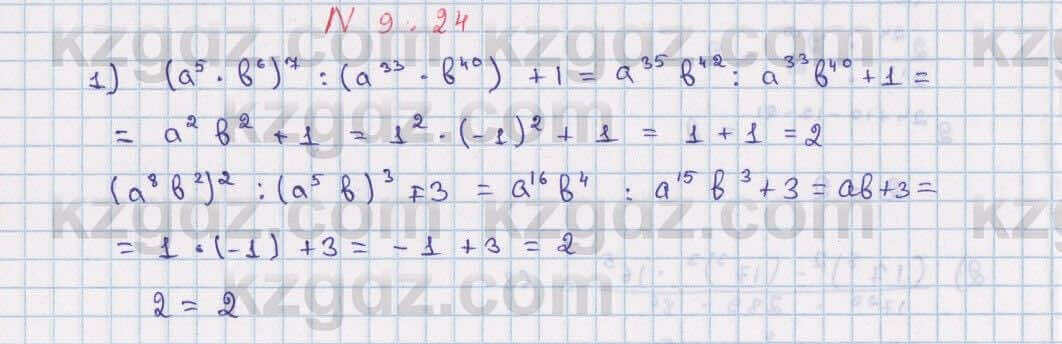 N 9.24
1) (a⁵ · b⁶)⁷ : (a³³ · b⁴⁰) + 1 = a³⁵ b⁴² : a³³ b⁴⁰ + 1 =
= a² b² + 1 = 1² · (-1)² + 1 = 1 + 1 = 2
(a⁸ b²)² : (a⁵ b)³ + 3 = a¹⁶ b⁴ : a¹⁵ b³ + 3 = ab + 3 =
= 1 · (-1) + 3 = - 1 + 3 = 2
2 = 2
kzgdz.com
kzgdz.com
kzgdz.com
kzgdz.com
kzgdz.com
kzgdz.com